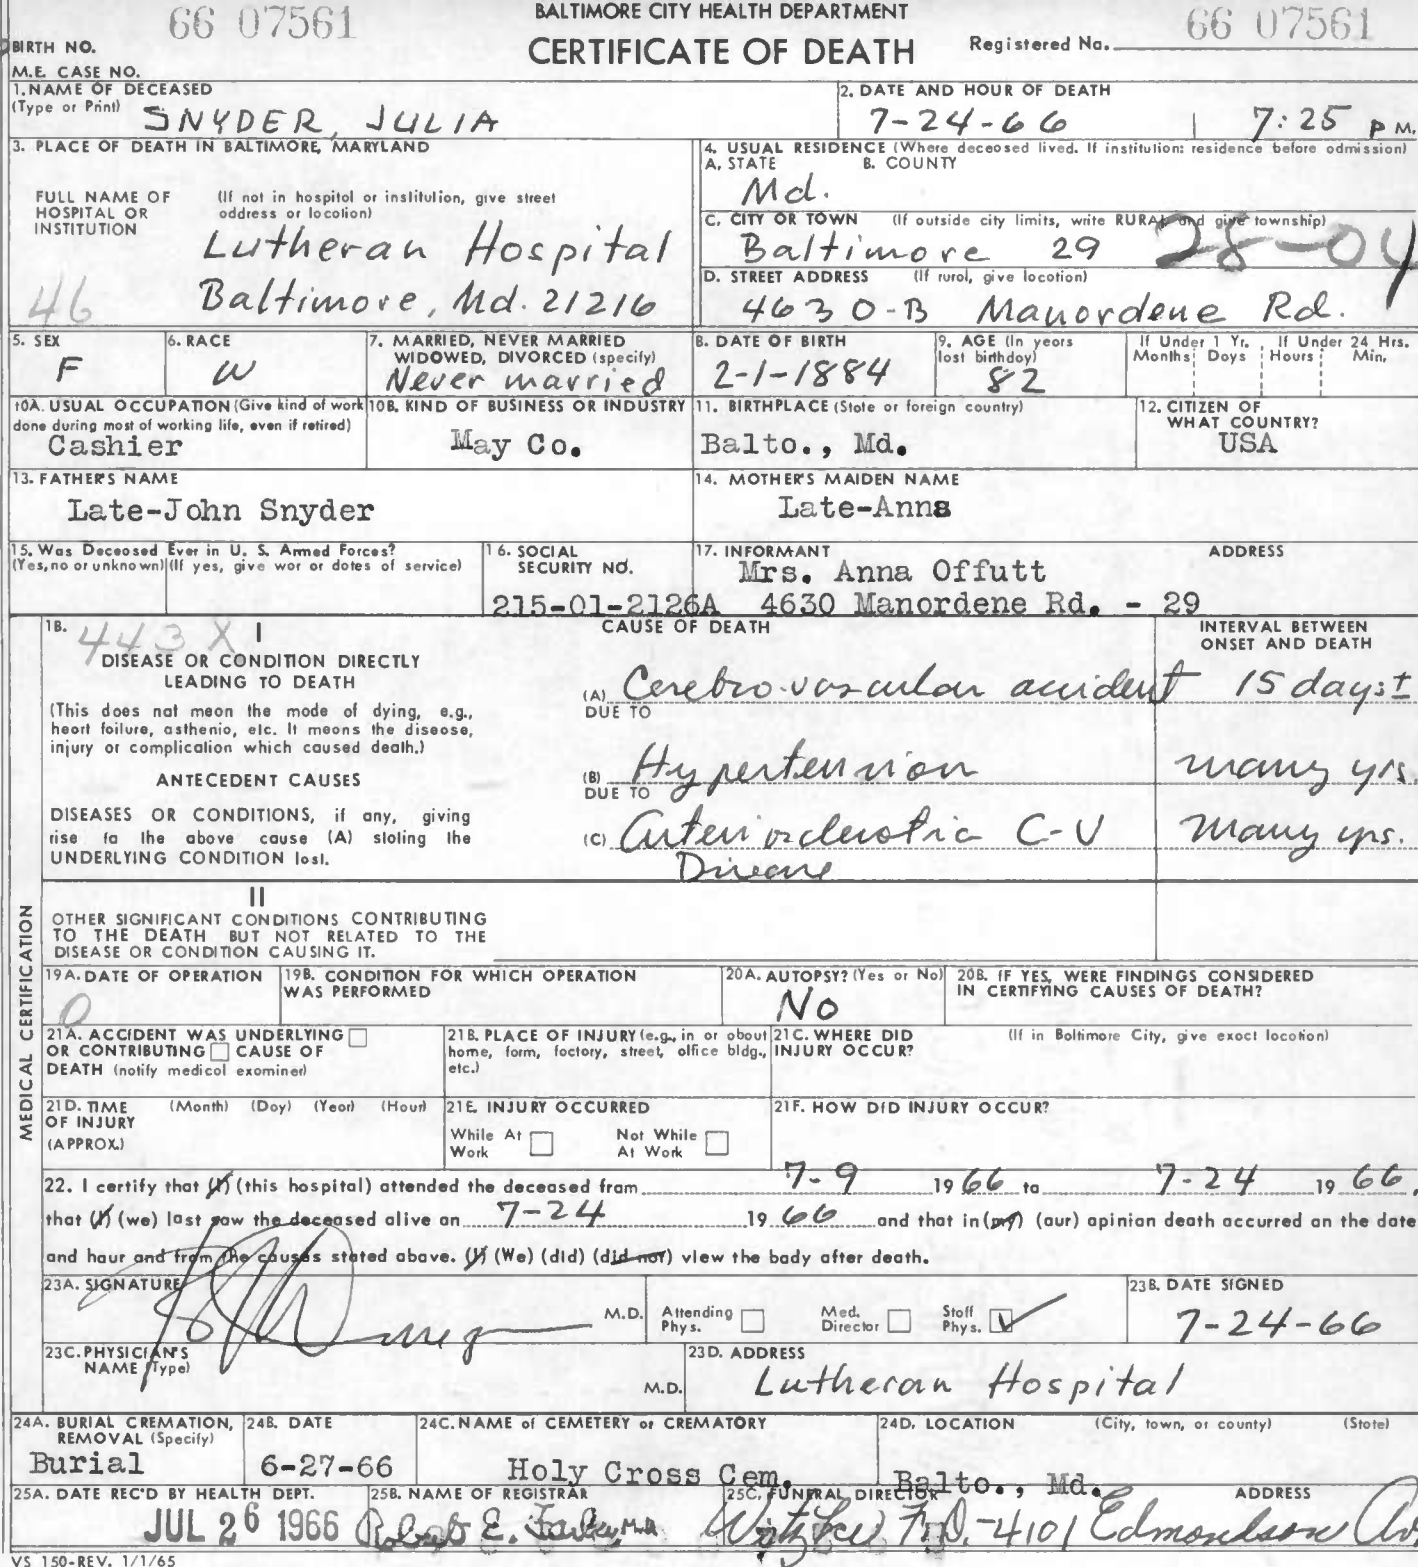 66 07561
BALTIMORE CITY HEALTH DEPARTMENT
66 07561
BIRTH NO.
CERTIFICATE OF DEATH
Registered No.
M.E. CASE NO.
1. NAME OF DECEASED
(Type or Print)
SNYDER, JULIA
2. DATE AND HOUR OF DEATH
7-24-66 7:25 P M.
3. PLACE OF DEATH IN BALTIMORE, MARYLAND
FULL NAME OF HOSPITAL OR INSTITUTION
(If not in hospital or institution, give street address or location)
Lutheran Hospital
Baltimore, Md. 21216
46
4. USUAL RESIDENCE (Where deceased lived. If institution: residence before admission)
A. STATE B. COUNTY
Md.
C. CITY OR TOWN (If outside city limits, write RURAL and give township)
Baltimore 29 28-04
D. STREET ADDRESS (If rural, give location)
4630-B Manordene Rd.
5. SEX
F
6. RACE
W
7. MARRIED, NEVER MARRIED
WIDOWED, DIVORCED (specify)
Never married
8. DATE OF BIRTH
2-1-1884
9. AGE (In years
last birthday)
82
If Under 1 Yr.
Months Days
If Under 24 Hrs.
Hours Min.
10A. USUAL OCCUPATION (Give kind of work
done during most of working life, even if retired)
Cashier
10B. KIND OF BUSINESS OR INDUSTRY
May Co.
11. BIRTHPLACE (State or foreign country)
Balto., Md.
12. CITIZEN OF
WHAT COUNTRY?
USA
13. FATHER'S NAME
Late-John Snyder
14. MOTHER'S MAIDEN NAME
Late-Anna
15. Was Deceased Ever in U. S. Armed Forces?
(Yes, no or unknown) (If yes, give war or dates of service)
16. SOCIAL
SECURITY NO.
215-01-2126A
17. INFORMANT ADDRESS
Mrs. Anna Offutt
4630 Manordene Rd. - 29
18.
443 X I
DISEASE OR CONDITION DIRECTLY
LEADING TO DEATH
(This does not mean the mode of dying, e.g.,
heart failure, asthenia, etc. It means the disease,
injury or complication which caused death.)
ANTECEDENT CAUSES
DISEASES OR CONDITIONS, if any, giving
rise to the above cause (A) stating the
UNDERLYING CONDITION last.
CAUSE OF DEATH
INTERVAL BETWEEN
ONSET AND DEATH
(A) Cerebro-vascular accident 15 days ±
DUE TO
(B) Hypertension many yrs.
DUE TO
(C) Arteriosclerotic C-V many yrs.
Disease
II
OTHER SIGNIFICANT CONDITIONS CONTRIBUTING
TO THE DEATH BUT NOT RELATED TO THE
DISEASE OR CONDITION CAUSING IT.
MEDICAL CERTIFICATION
19A. DATE OF OPERATION
0
19B. CONDITION FOR WHICH OPERATION
WAS PERFORMED
20A. AUTOPSY? (Yes or No)
No
20B. IF YES, WERE FINDINGS CONSIDERED
IN CERTIFYING CAUSES OF DEATH?
21A. ACCIDENT WAS UNDERLYING
OR CONTRIBUTING CAUSE OF
DEATH (notify medical examiner)
21B. PLACE OF INJURY (e.g., in or about
home, farm, factory, street, office bldg.,
etc.)
21C. WHERE DID (If in Baltimore City, give exact location)
INJURY OCCUR?
21D. TIME (Month) (Day) (Year) (Hour)
OF INJURY
(APPROX.)
21E. INJURY OCCURRED
While At Work
Not While At Work
21F. HOW DID INJURY OCCUR?
22. I certify that (I) (this hospital) attended the deceased from 7-9 1966 to 7-24 1966,
that (I) (we) last saw the deceased alive on 7-24 1966 and that in (my) (our) opinion death occurred on the date
and hour and from the causes stated above. (I) (We) (did) (did not) view the body after death.
23A. SIGNATURE
M.D.
Attending Phys.
Med. Director
Staff Phys.
23B. DATE SIGNED
7-24-66
23C. PHYSICIAN'S
NAME (Type)
M.D.
23D. ADDRESS
Lutheran Hospital
24A. BURIAL CREMATION,
REMOVAL (Specify)
Burial
24B. DATE
6-27-66
24C. NAME of CEMETERY or CREMATORY
Holy Cross Cem.
24D. LOCATION (City, town, or county) (State)
Balto., Md.
25A. DATE REC'D BY HEALTH DEPT.
JUL 26 1966
25B. NAME OF REGISTRAR
Robert E. Farber, M.D.
25C. FUNERAL DIRECTOR ADDRESS
Witzke F.D. - 4101 Edmondson Av
VS 150-REV. 1/1/65